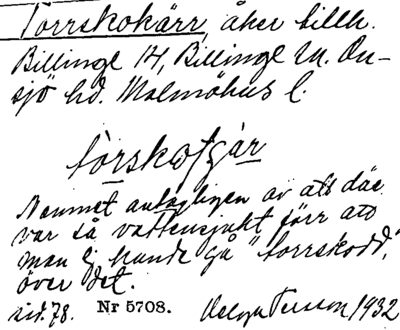 Torrskokärr, åker tillh.
Billinge 14, Billinge sn. On-
sjö hd. Malmöhus l.
Namnet antagligen av att där
var så vattensjukt förr att
man ej kunde gå "torrskodd"
över det.
sid. 78. Nr 5708. Helga Persson 1932